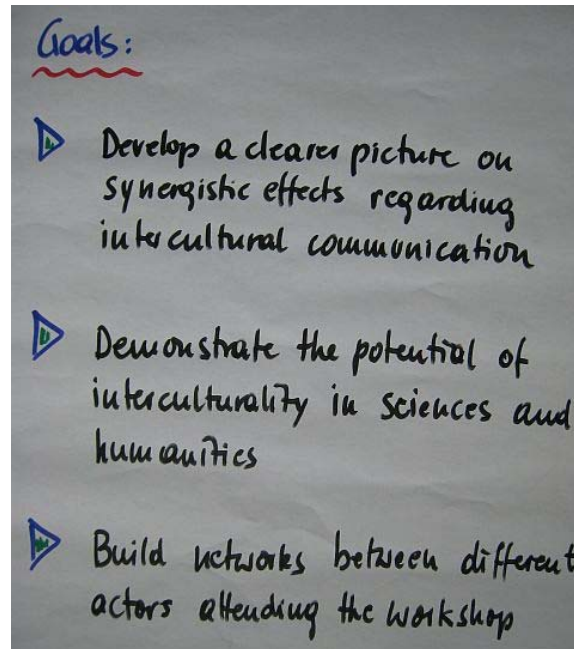 Goals:
Develop a clearer picture on
synergistic effects regarding
intercultural communication
Demonstrate the potential of
interculturality in sciences and
humanities
Build networks between different
actors attending the workshop